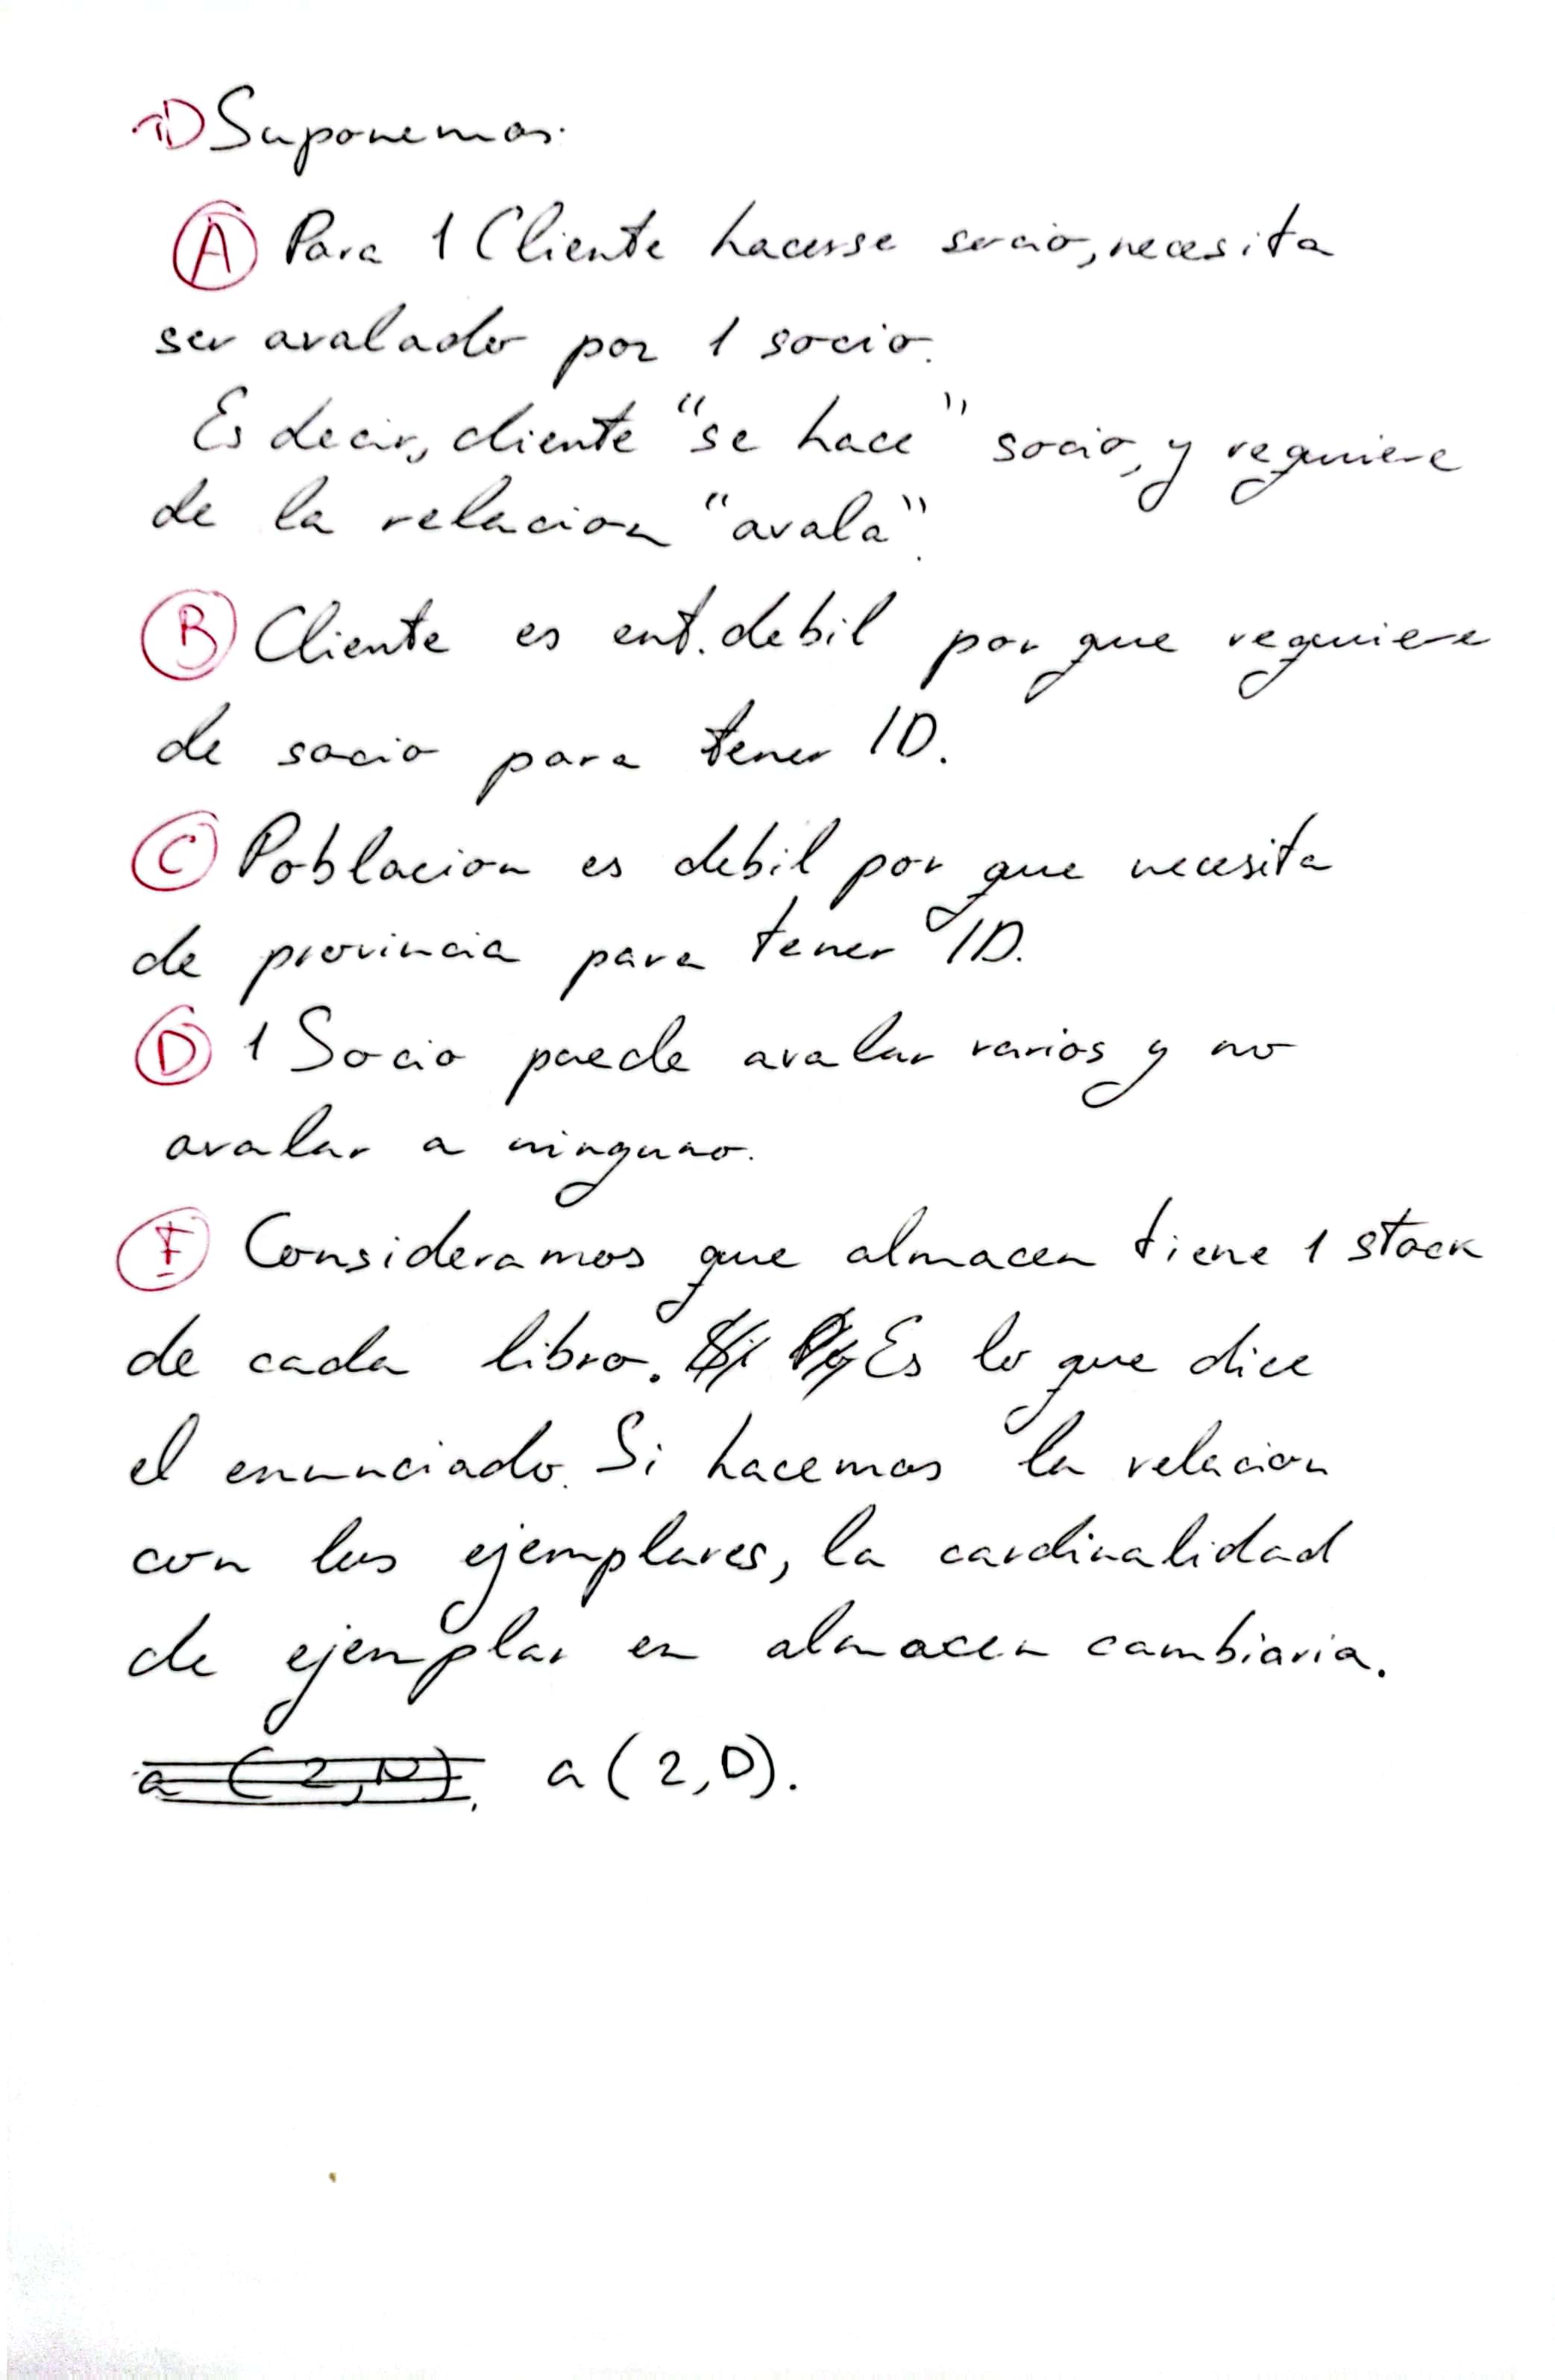 1) Suponemos:
A Para 1 Cliente hacerse socio, necesita
ser avalado por 1 socio.
Es decir, cliente "se hace" socio, y requiere
de la relacion "avala".
B Cliente es ent. debil por que requiere
de socio para tener ID.
C Poblacion es debil por que necesita
de provincia para tener ID.
D 1 Socio puede avalar varios y no
avalar a ninguno.
E Consideramos que almacen tiene 1 stock
de cada libro. Es lo que dice
el enunciado. Si hacemos la relacion
con los ejemplares, la cardinalidad
de ejemplar en almacen cambiaria.
a (2,N). a (2,D).